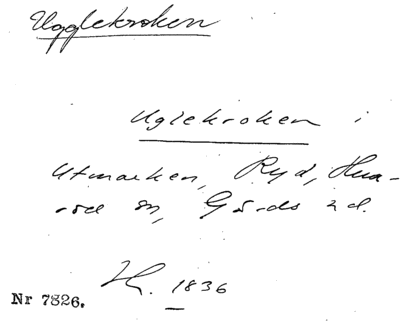 Ugglekroken
Uglekroken i
Utmarken, Ryd, Hua-
röd sn, Gärds hd.
LK. 1836
Nr 7826.